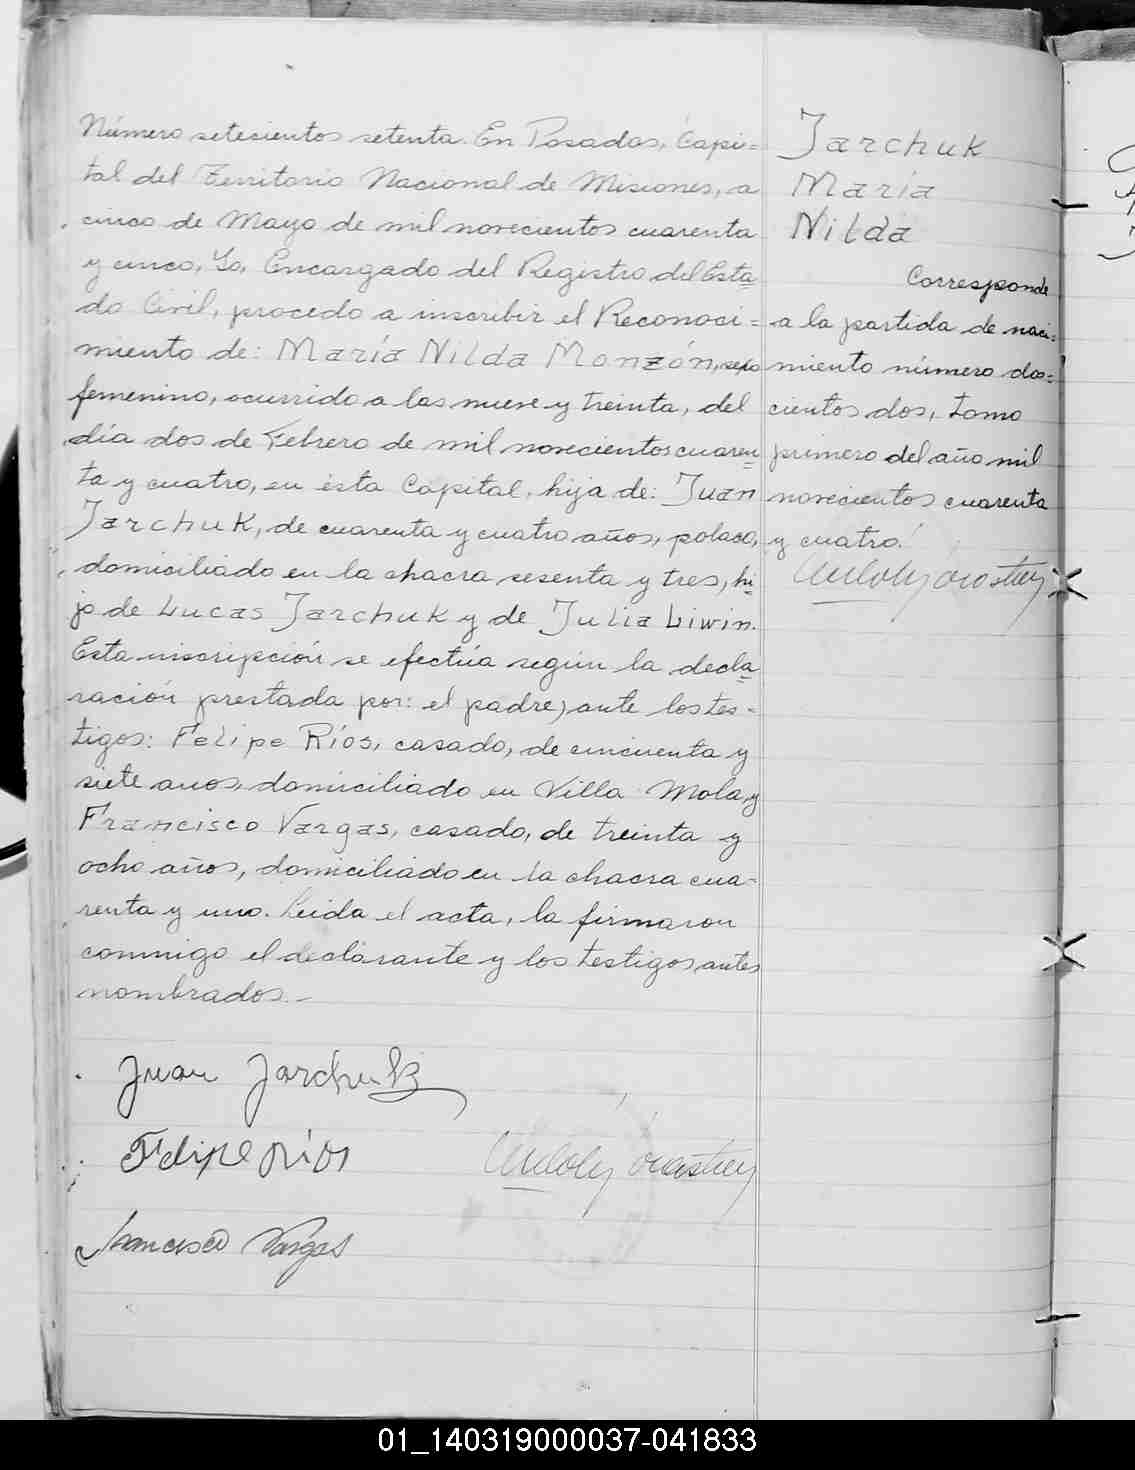 Número setecientos setenta. En Posadas, Capi=
tal del Territorio Nacional de Misiones, a
cinco de Mayo de mil novecientos cuarenta
y cinco, Yo, Encargado del Registro del Esta
do Civil, procedo a inscribir el Reconoci=
miento de: María Nilda Monzón, sexo
femenino, ocurrido a las nueve y treinta, del
día dos de Febrero de mil novecientos cuaren
ta y cuatro, en ésta Capital, hija de: Juan
Jarchuk, de cuarenta y cuatro años, polaco,
domiciliado en la chacra sesenta y tres, hi
jo de Lucas Jarchuk y de Julia Liwin.
Esta inscripción se efectúa según la decla
ración prestada por: el padre, ante los tes-
tigos: Felipe Ríos, casado, de cincuenta y
siete anos, domiciliado en Villa Mola, y
Francisco Vargas, casado, de treinta y
ocho años, domiciliado en la chacra cua-
renta y uno. Leida el acta, la firmaron
conmigo el declarante y los testigos antes
nombrados.-
Juan Jarchuk
Felipe Rios
Francisco Vargas
Jarchuk
María
Nilda
Corresponde
a la partida de naci=
miento número dos=
cientos dos, tomo
primero del año mil
novecientos cuarenta
y cuatro.
01_140319000037-041833